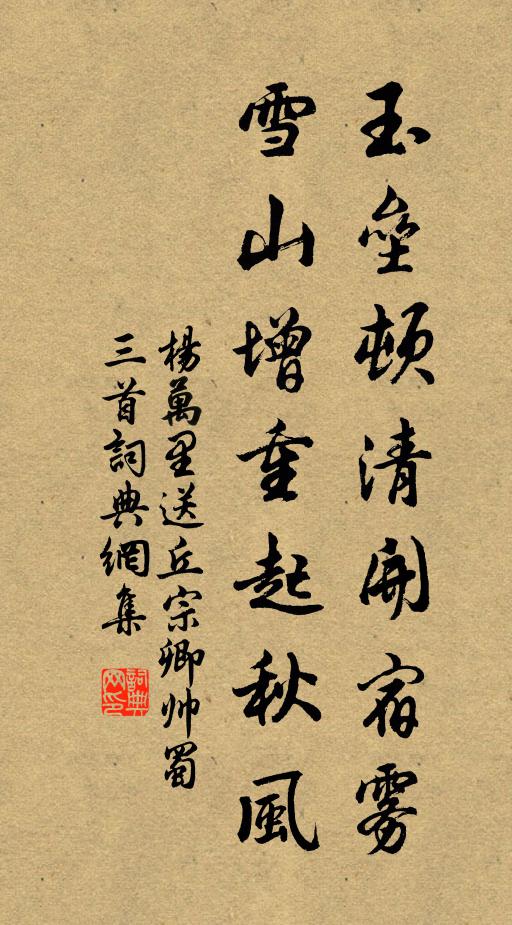 玉壘頓清開宿霧
雪山增重起秋風
楊萬里送丘宗卿帅蜀
三首詞典網集
詞典网印